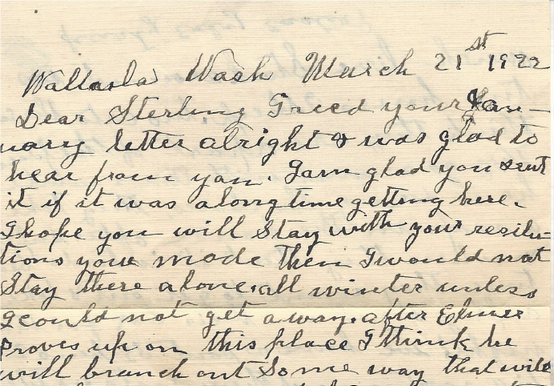 Wallasla Wash March 21st 1922
Dear Sterling I recd your Jan-
uary letter alright & was glad to
hear from you. I am glad you sent
it if it was a long time getting here.
I hope you will Stay with your resolu-
tions your made then I would not
Stay there alone all winter unless
I could not get away. after Elmer
Proves up on this place I think he
will branch out Some way that will